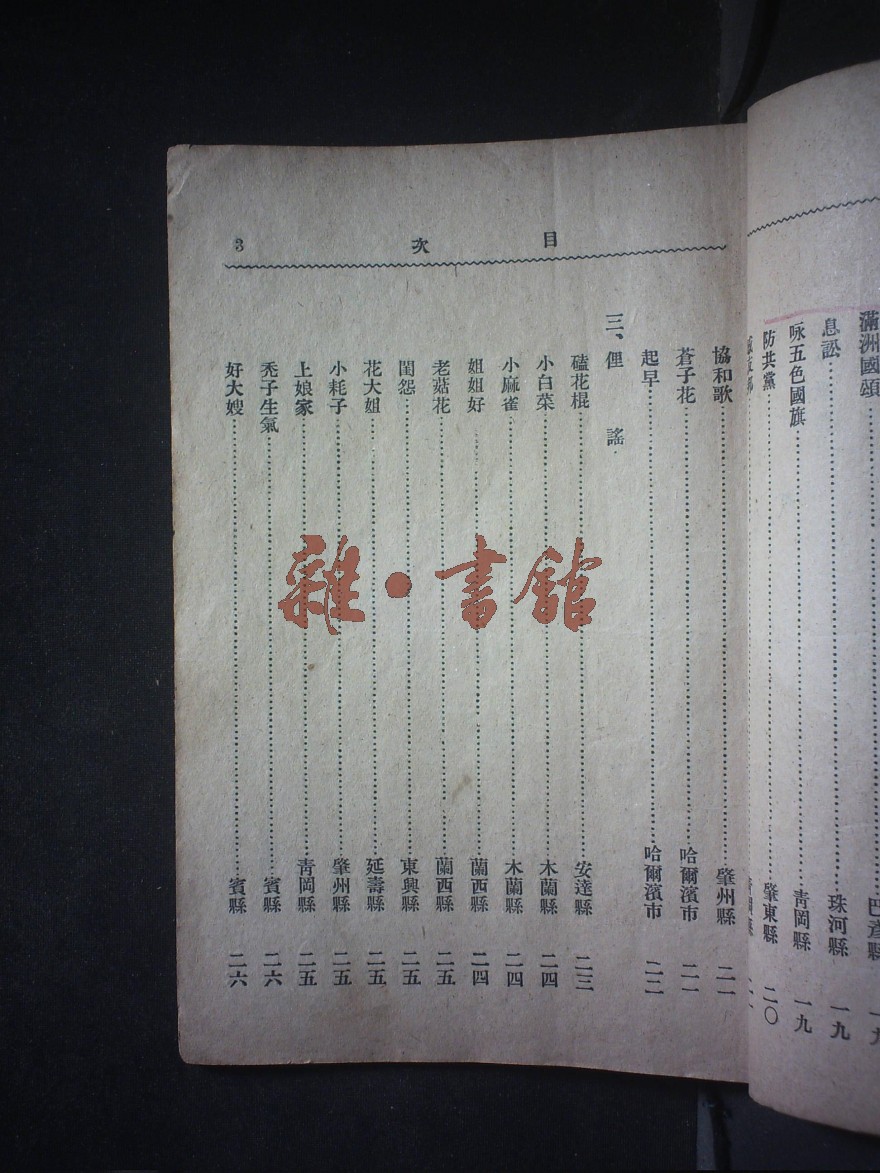 滿洲國頌……巴彥縣 一九
息訟……珠河縣 一九
咏五色國旗……靑岡縣 一九
防共黨……肇東縣 二〇
目 次 3
協和歌……肇州縣 二一
蒼子花……哈爾濱市 二一
起早……哈爾濱市 二二
三、俚 謠
磕花棍……安達縣 二三
小白菜……木蘭縣 二四
小麻雀……木蘭縣 二四
姐姐好……蘭西縣 二四
老菇花……蘭西縣 二五
閨怨……東興縣 二五
花大姐……延壽縣 二五
小耗子……肇州縣 二五
上娘家……靑岡縣 二五
禿子生氣……賓縣 二六
好大嫂……賓縣 二六
雜·書館